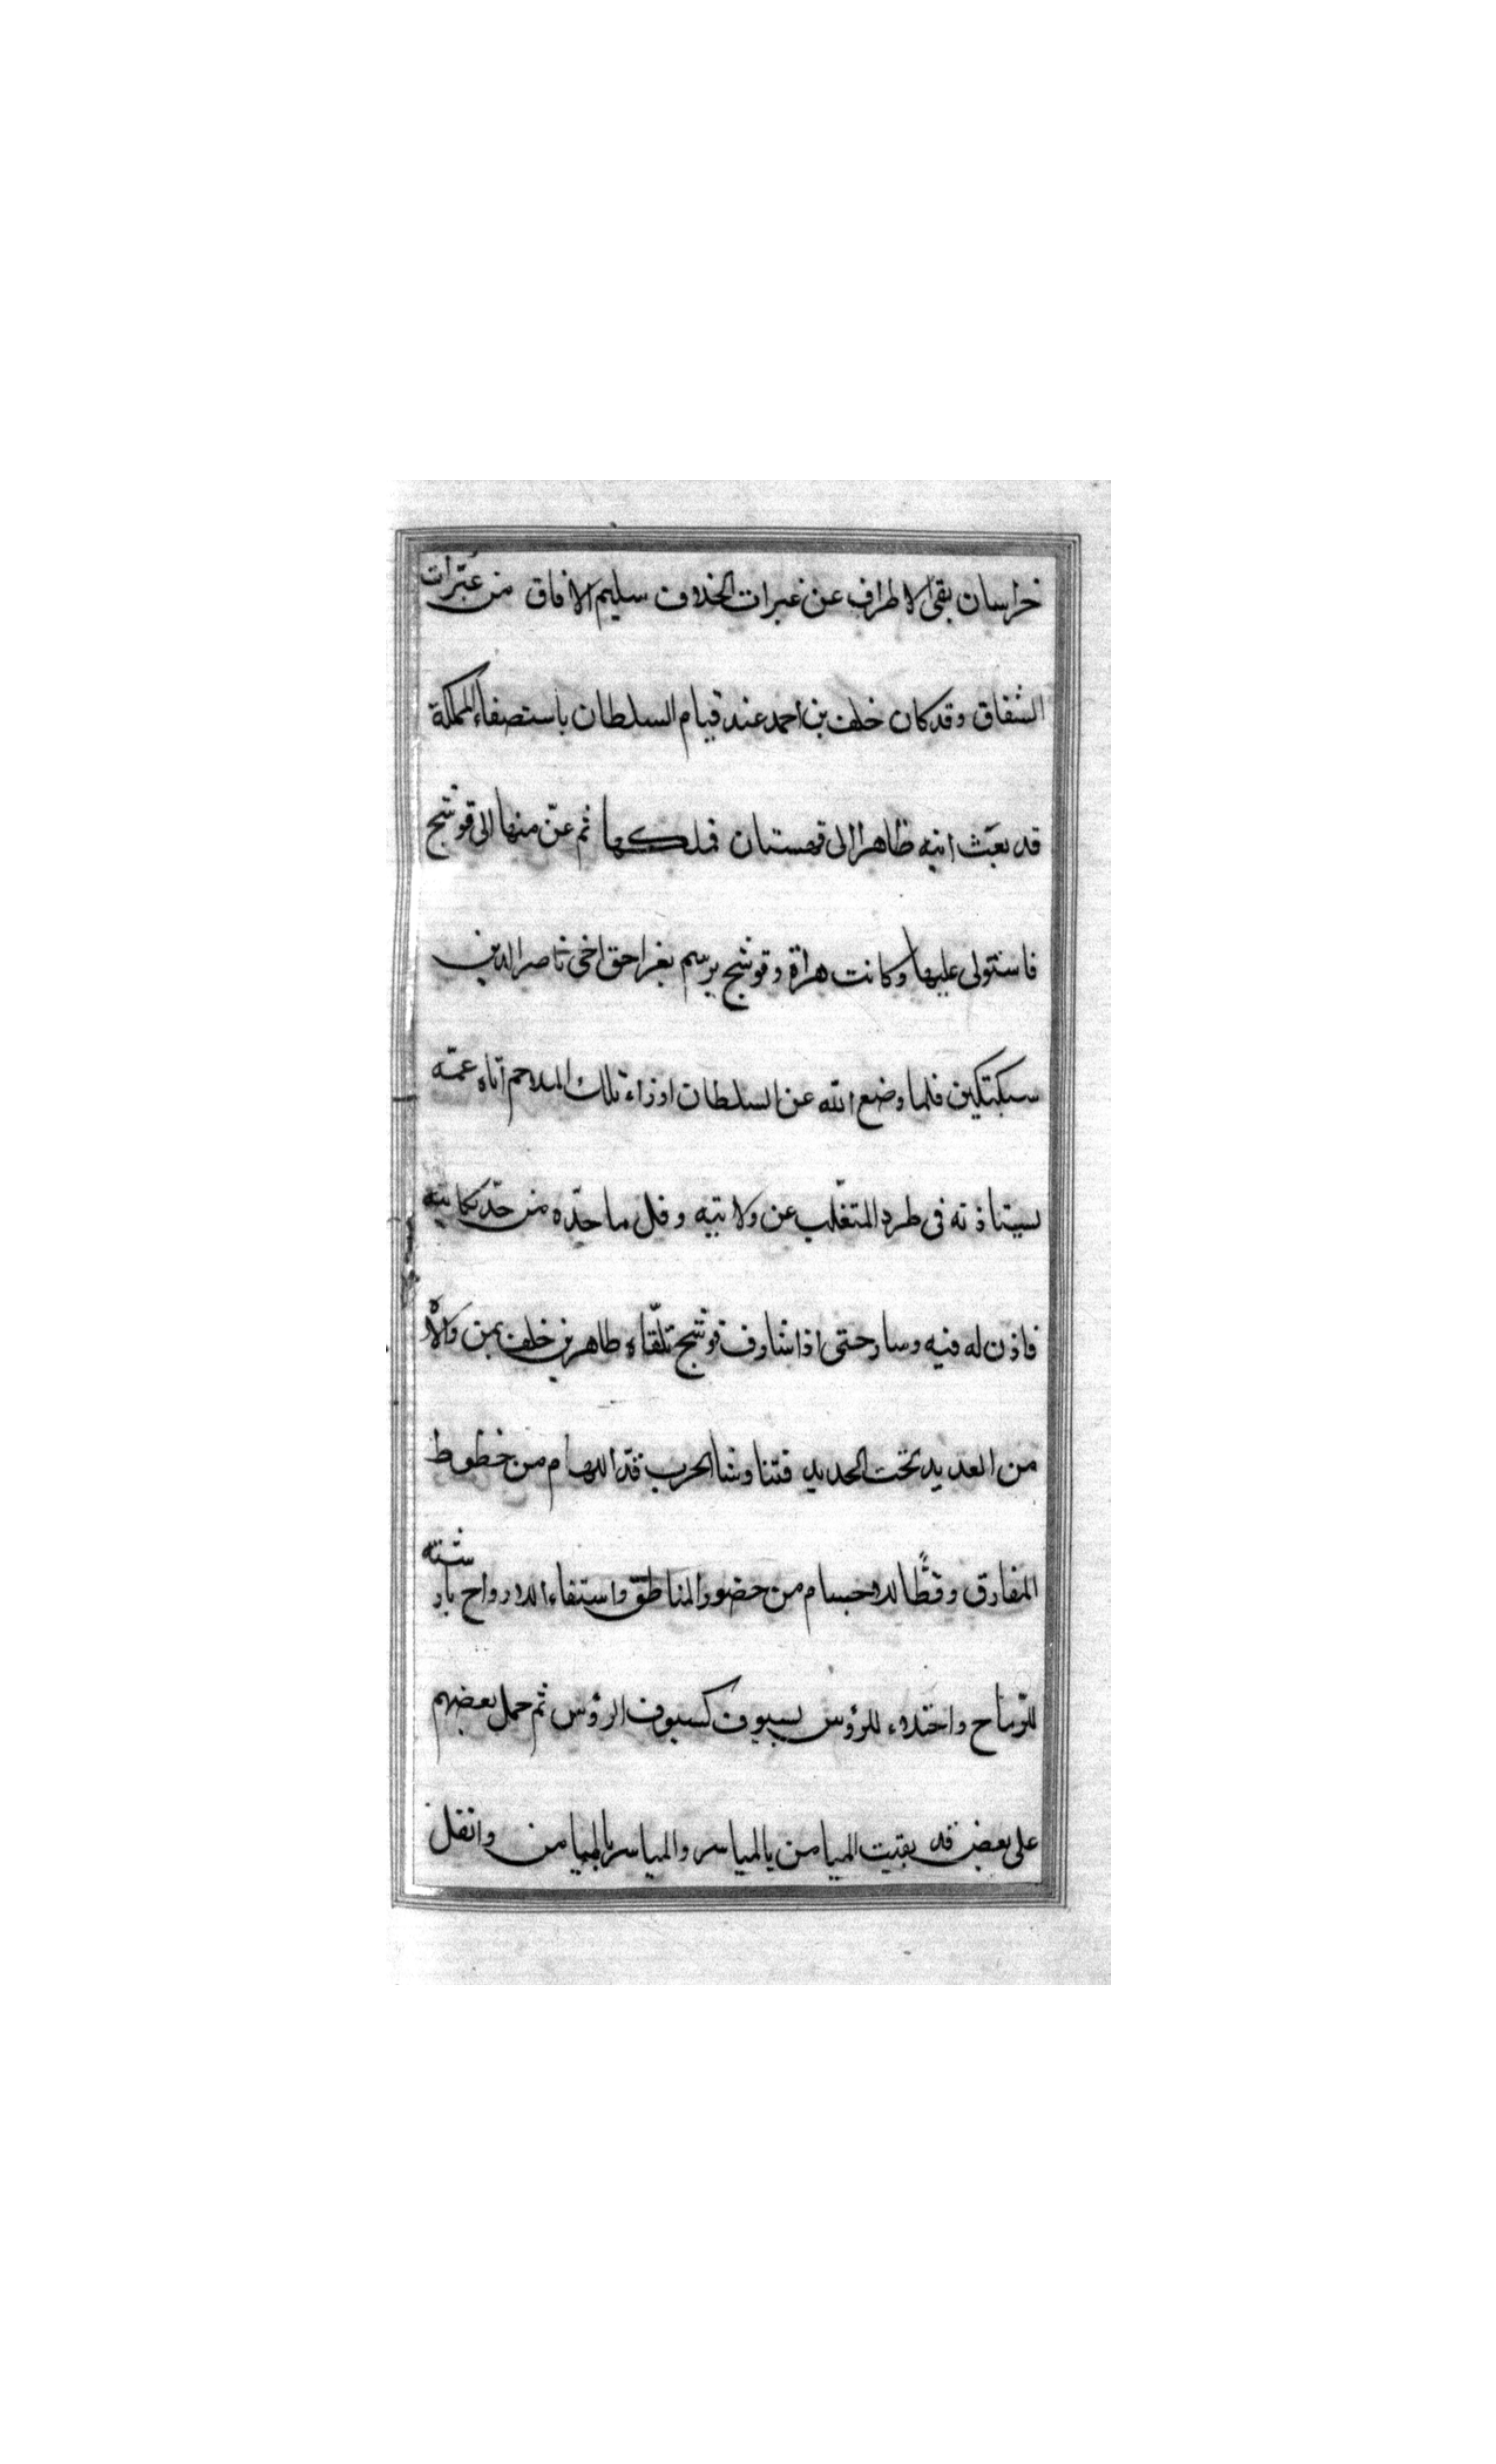 خراسان بقى الاطراف عن غبرات الخلاف سليم الافاق من عثرات
الشقاق وقد كان خلف بن احمد عند قيام السلطان باستصفاء المملكة
قد بعث ابنه ظاهرا الى قهستان فملكها ثم عن منها الى قوشج
فاستولى عليها وكانت هراة وقوشج برسم بغراجق اخى ناصر الدين
سبكتكين فلما وضع الله عن السلطان اوزاء تلك الملاحم اتاه عمّه
يستاذنه فى طرد المتغلّب عن ولايتيه وفل ما حدّه من حدّ نكايته
فاذن له فيه وسار حتى اذا شارف فوشج تلقّاه طاهر بن خلف بمن والاه
من العديد تحت الحديد فتناوشا الحرب قدّا للهام من خطوط
المفارق وقطًّا للاجسام من حضور المناطق واستفاء للارواح بارشته
للرّماح واختلاء للرؤس بسيوف كسيوف الرؤس ثم حمل بعضهم
على بعض قد بقيت الميامن بالمياسر والمياسر بالميامن وانفل